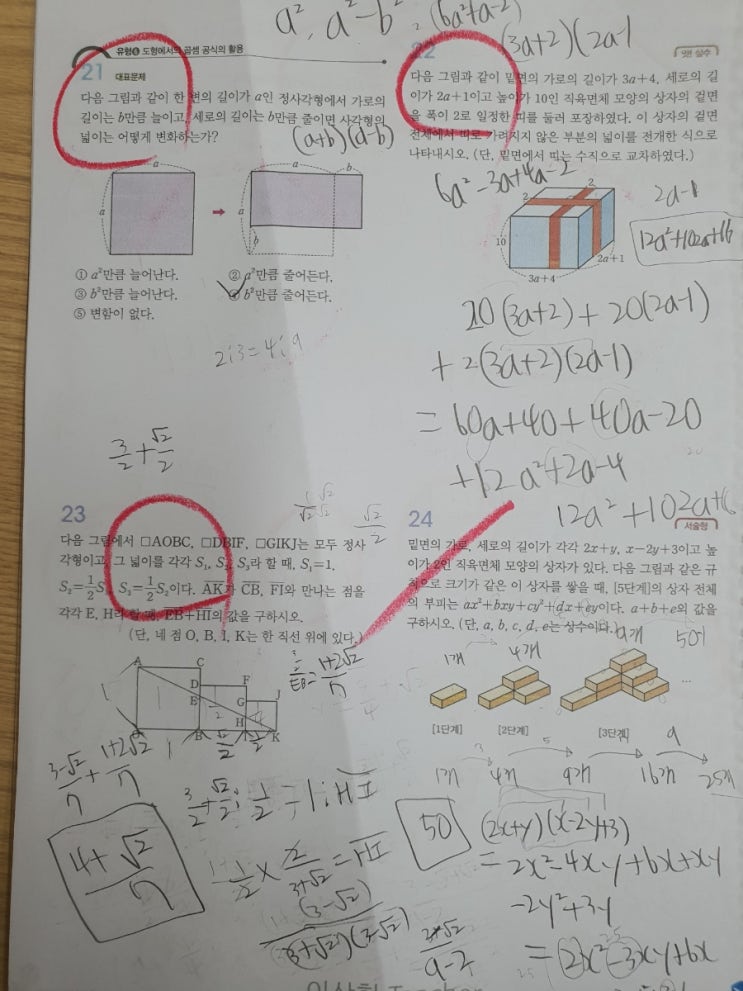 a², a²-b²
(6a²+a-2)
(3a+2)(2a-1
유형 6 도형에서의 곱셈 공식의 활용
21
대표문제
다음 그림과 같이 한 변의 길이가 a인 정사각형에서 가로의
길이는 b만큼 늘이고, 세로의 길이는 b만큼 줄이면 사각형의
넓이는 어떻게 변화하는가?
(a+b)(a-b)
a
a
a
b
a
b
① a²만큼 늘어난다.
② a²만큼 줄어든다.
③ b²만큼 늘어난다.
④ b²만큼 줄어든다.
⑤ 변함이 없다.
2:3=4:9
22
다음 그림과 같이 밑면의 가로의 길이가 3a+4, 세로의 길
이가 2a+1이고 높이가 10인 직육면체 모양의 상자의 겉면
을 폭이 2로 일정한 띠를 둘러 포장하였다. 이 상자의 겉면
전체에서 띠로 가려지지 않은 부분의 넓이를 전개한 식으로
나타내시오. (단, 밑면에서 띠는 수직으로 교차하였다.)
6a²-3a+4a-2
2
2
10
3a+4
2a+1
2a-1
12a²+102a+16
20(3a+2)+20(2a-1)
+2(3a+2)(2a-1)
=60a+40+40a-20
+12a²+2a-4
12a²+102a+
3/2+√2/2
√2/2
23
다음 그림에서 □AOBC, □DBIF, □GIKJ는 모두 정사
각형이고, 그 넓이를 각각 S₁, S₂, S₃라 할 때, S₁=1,
S₂=½S₁, S₃=½S₂이다. AK가 CB, FI와 만나는 점을
각각 E, H라 할 때, EB+HI의 값을 구하시오.
(단, 네 점 O, B, I, K는 한 직선 위에 있다.)
A
C
D
F
E
G
J
H
O
B
I
K
EB=(1+2√2)/7
(3-√2)/7+(1+2√2)/7
(4+√2)/7
3/2+√2/2:1/2=1:HI
1/2×2/(3+√2)=HI
(3-√2)
(3+√2)(3-√2)
9-2
24
서술형
밑면의 가로, 세로의 길이가 각각 2x+y, x-2y+3이고 높
이가 2인 직육면체 모양의 상자가 있다. 다음 그림과 같은 규
칙으로 크기가 같은 이 상자를 쌓을 때, [5단계]의 상자 전체
의 부피는 ax²+bxy+cy²+dx+ey이다. a+b+e의 값을
구하시오. (단, a, b, c, d, e는 상수이다.)
1개
4개
9개
50
...
[1단계]
[2단계]
[3단계]
3
5
9
1개
4개
9개
16개
25개
50
(2x+y)(x-2y+3)
=2x²-4xy+6x+xy
-2y²+3y
=2x²-3xy+6x